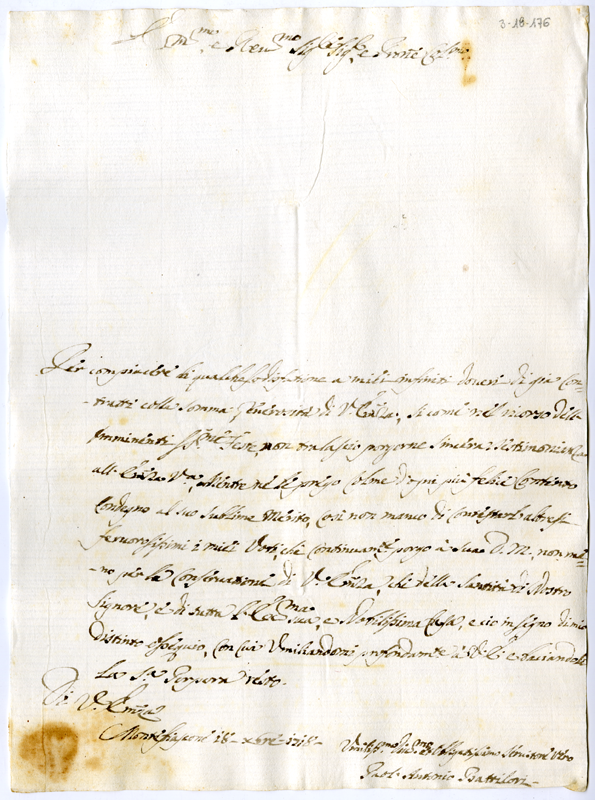 3-18-176
Em.mo e Reu.mo Sig.re Sig.re e Prone Col.mo
Per compiacere di qualche sodisfazione a miei infiniti doueri di già con-
-tratti colla somma generosità di V.ra Emza, si come nel ricorso delle
imminenti SS.me Feste non tralascio porgerne sincera testimonianza
all' Emza V.ra, mentre nelle prego colme d'ogni più felice contento
condegno al suo sublime merito, così non manco di contestarle altresì
feruorosissimi i miei Voti, che continuam.te porgo a Sua D. M., non me-
-no per la Conseruatione di V.ra Emza, che della Santità di Nostro
Signore, e di tutta sua, e Nobilissima Casa, e ciò in segno di mio
distinto ossequio, con cui umiliandomi profondam.te a V.ra E. e baciandole
La S.a Porpora resto.
Di V.ra Emza
Montefiascone 18 xbre
Umiliss.mo Diu.mo et Obligatissimo Seruitore Vero
Paol' Antonio Battilori